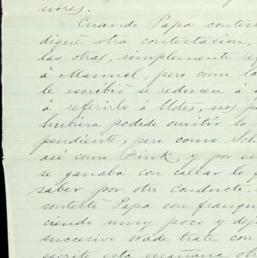 nores.
Cuando Papa contest
digué otra contestacion,
las otras, simplemente ref
á Manuel, pero como lo
le escribió se reducen á
á referirlo á Udes, nos p
hubiera podido omitir lo
pendiente, pero como Sch
asi como Finck, y por se
se ganaba con callar lo q
saber por otro Conducto.
contestó Papa con franqu
ciendo muy poco y dej
sucesivo Wade trate con
escribe esta mañana otr